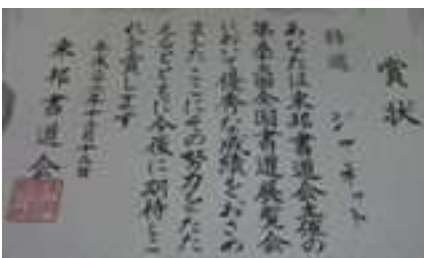 賞状
特選
あなたは東邦書道会主催の
全国書道展覧会
において優秀な成績をおさめ
またここにその努力をたた
えるとともに今後に期待しこ
れを賞します
東邦書道会